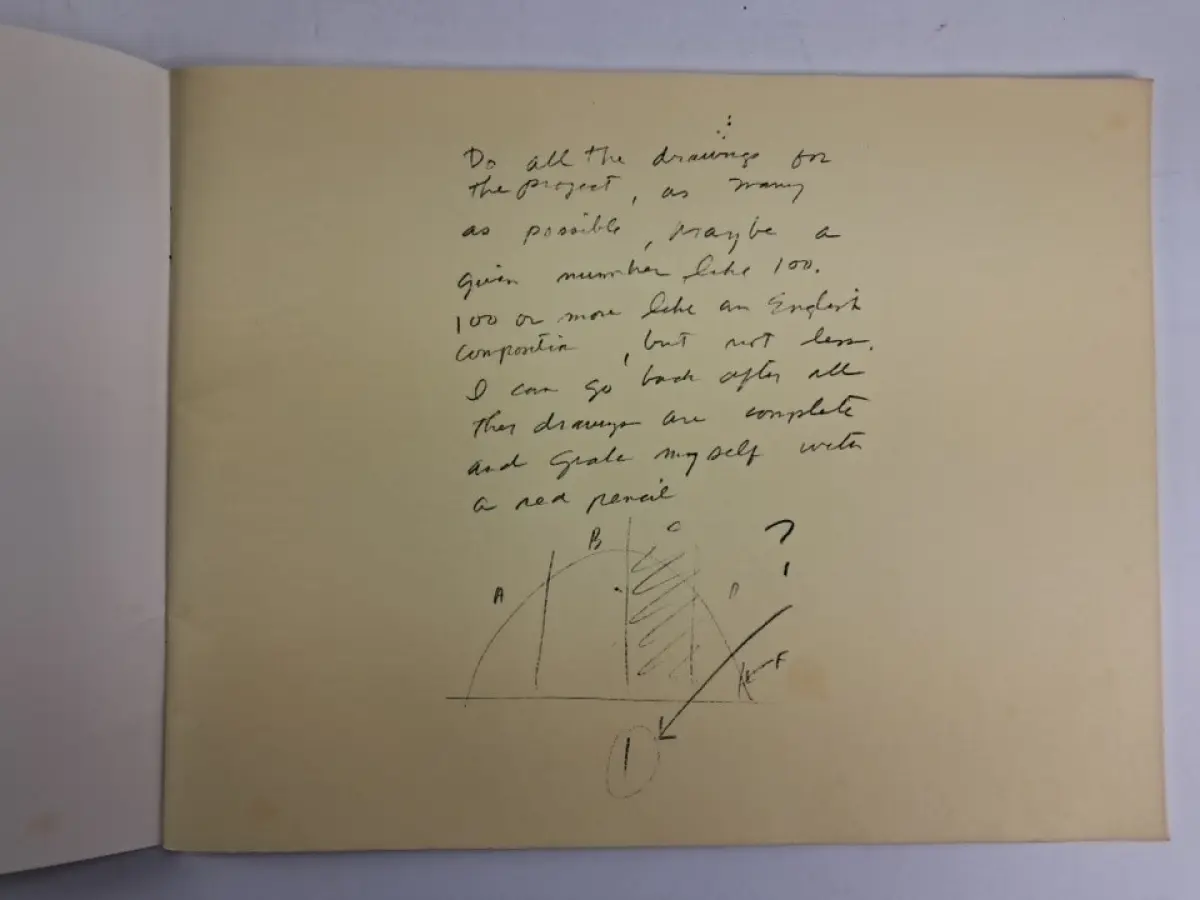 Do all the drawings for
the project, as many
as possible, maybe a
given number like 100.
100 or more like an English
composition, but not less.
I can go back after all
the drawings are complete
and grade myself with
a red pencil
A B C ?
D
F
1